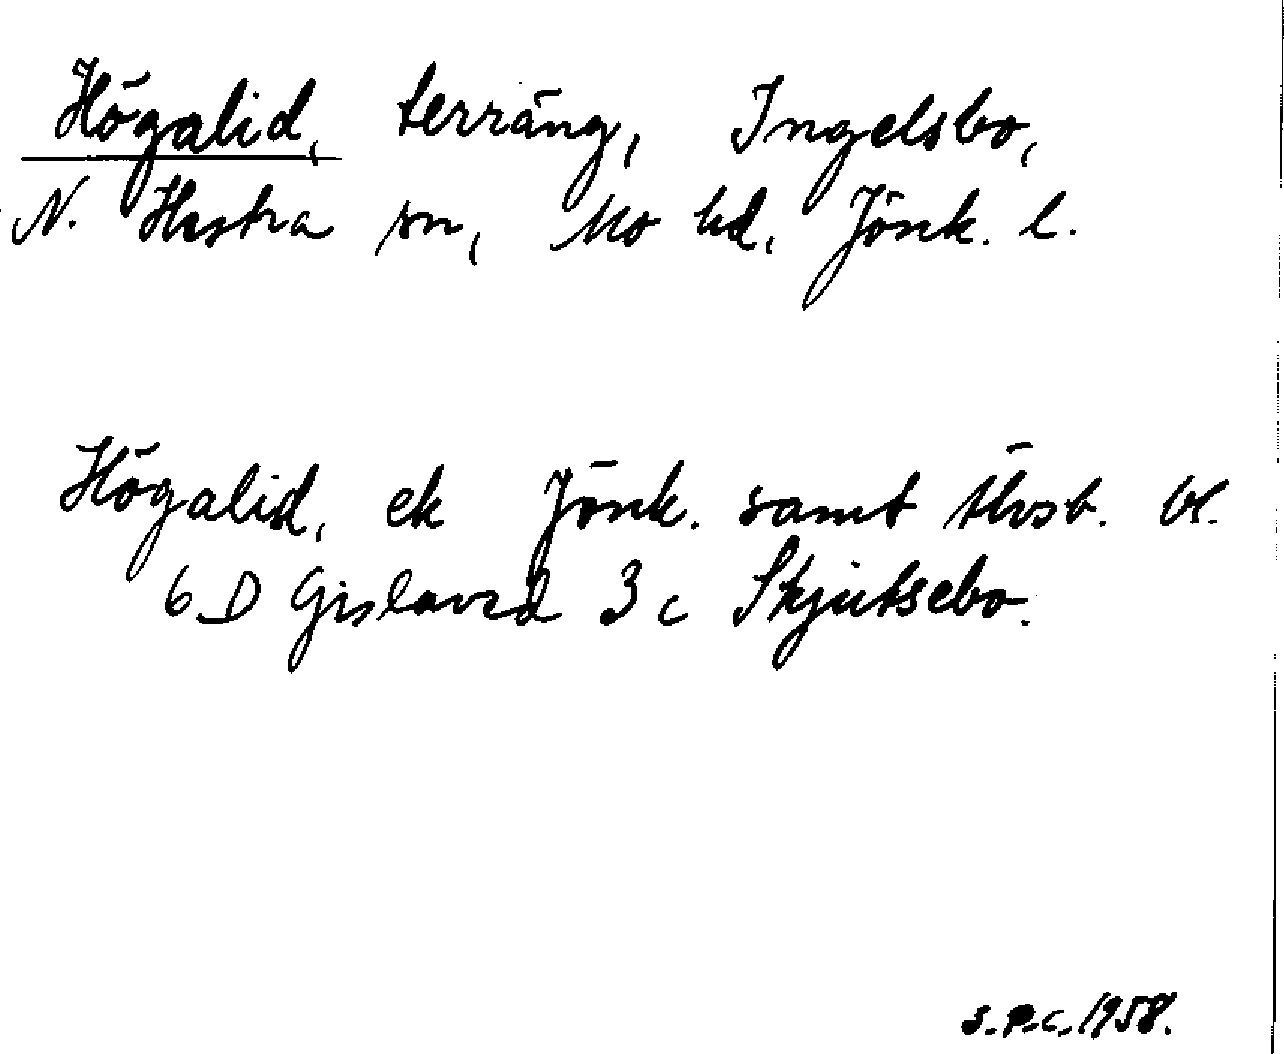 Högalid, terräng, Ingelsbo,
N. Hestra sn, Mo hd, Jönk. l.
Högalid, ek Jönk. samt Älvsb. bl.
6 D Gislaved 3 c Skjutsebo.
S.P.C. 1958.